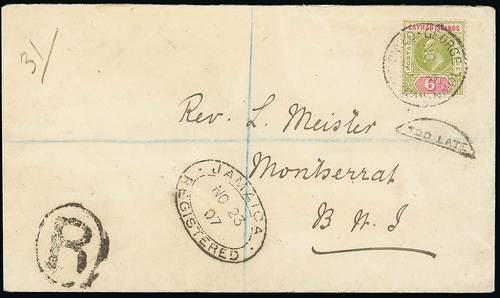 31
CAYMAN ISLANDS
POSTAGE
6
GEORGETOWN
TOO LATE
Rev. L. Meister
Montserrat
B W I
JAMAICA
NO 23
07
REGISTERED
R